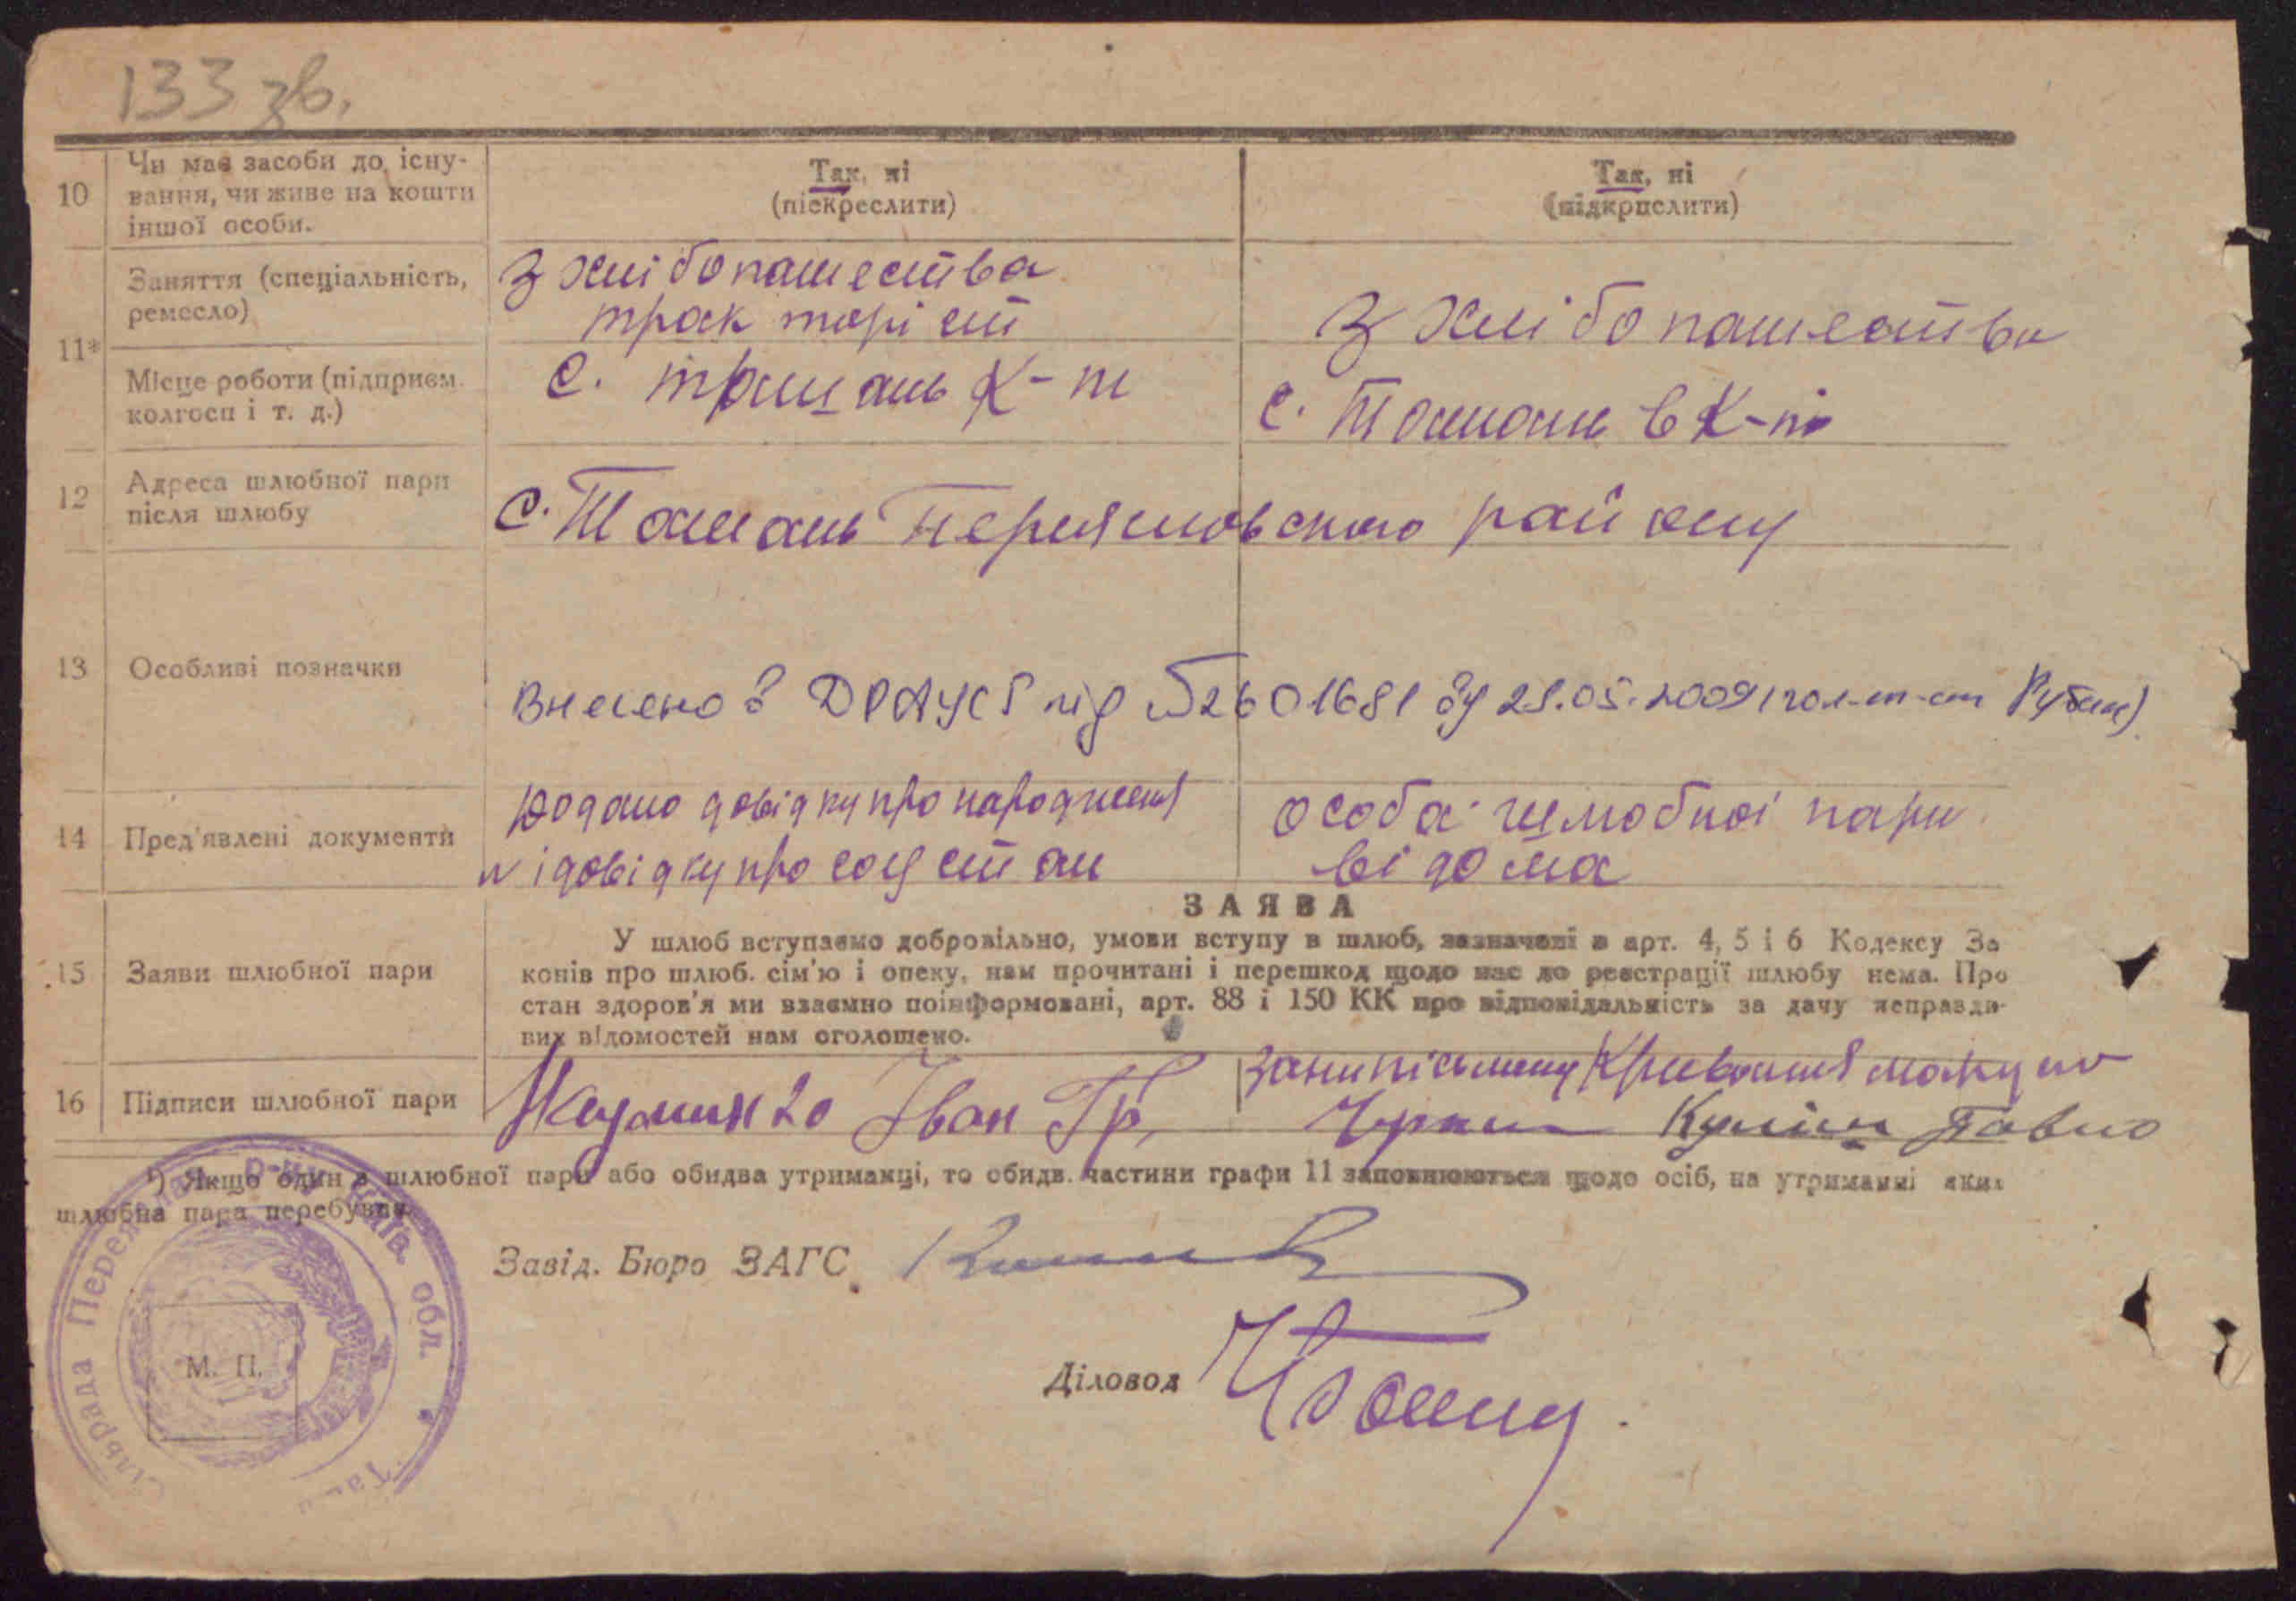 133 зв.
10
Чи має засоби до існу-
вання, чи живе на кошти
іншої особи.
Так, ні
(піскреслити)
Так, ні
(підкрпслити)
11*
Заняття (спеціальність,
ремесло)
З хлібопашества
тракторіст
З хлібопашества
Місце роботи (підприєм.
колгосп і т. д.)
с. К-п
с. Ташань в К-пі
12
Адреса шлюбної пари
після шлюбу
с. Ташань району
13
Особливі позначки
Внесено в ДРАЦСГ під №2601681 від 2009
14
Пред'явлені документи
Додано довідку про народження
і довідку про соц стан
особа шлюбної пари
відома
15
Заяви шлюбної пари
ЗАЯВА
У шлюб вступаємо добровільно, умови вступу в шлюб, зазначені в арт. 4, 5 і 6 Кодексу За
конів про шлюб. сім'ю і опеку, нам прочитані і перешкод щодо нас до реєстрації шлюбу нема. Про
стан здоров'я ми взаємно поінформовані, арт. 88 і 150 КК про відповідальність за дачу неправди-
вих відомостей нам оголошено.
16
Підписи шлюбної пари
Іван Гр.
Павло
*) Якщо один з шлюбної пари або обидва утриманці, то обидв. частини графи 11 заповнюються щодо осіб, на утриманні яких
шлюбна пара перебуває.
Завід. Бюро ЗАГС
Діловод
М. П.
Сільрада обл.